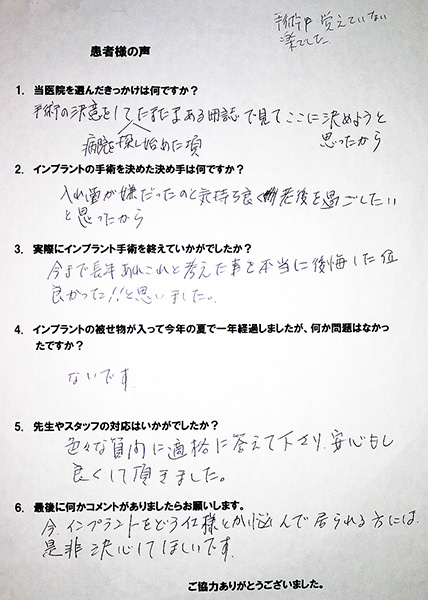 手術中 覚えていない
楽でした
患者様の声
1. 当医院を選んだきっかけは何ですか？
手術の決意をしてたまたまある冊誌で見てここに決めようと
病院を探し始めた頃 思ったから
2. インプラントの手術を決めた決め手は何ですか？
入れ歯が嫌だったのと気持ち良く老後を過ごしたい
と思ったから
3. 実際にインプラント手術を終えていかがでしたか？
今まで長年あれこれと考えた事を本当に後悔した位
良かった!!と思いました。
4. インプラントの被せ物が入って今年の夏で一年経過しましたが、何か問題はなかっ
たですか？
ないです
5. 先生やスタッフの対応はいかがでしたか？
色々な質問に適格に答えて下さり、安心もし
良くして頂きました。
6. 最後に何かコメントがありましたらお願いします。
今、インプラントをどう仕様とか悩んで居られる方には、
是非決心してほしいです。
ご協力ありがとうございました。